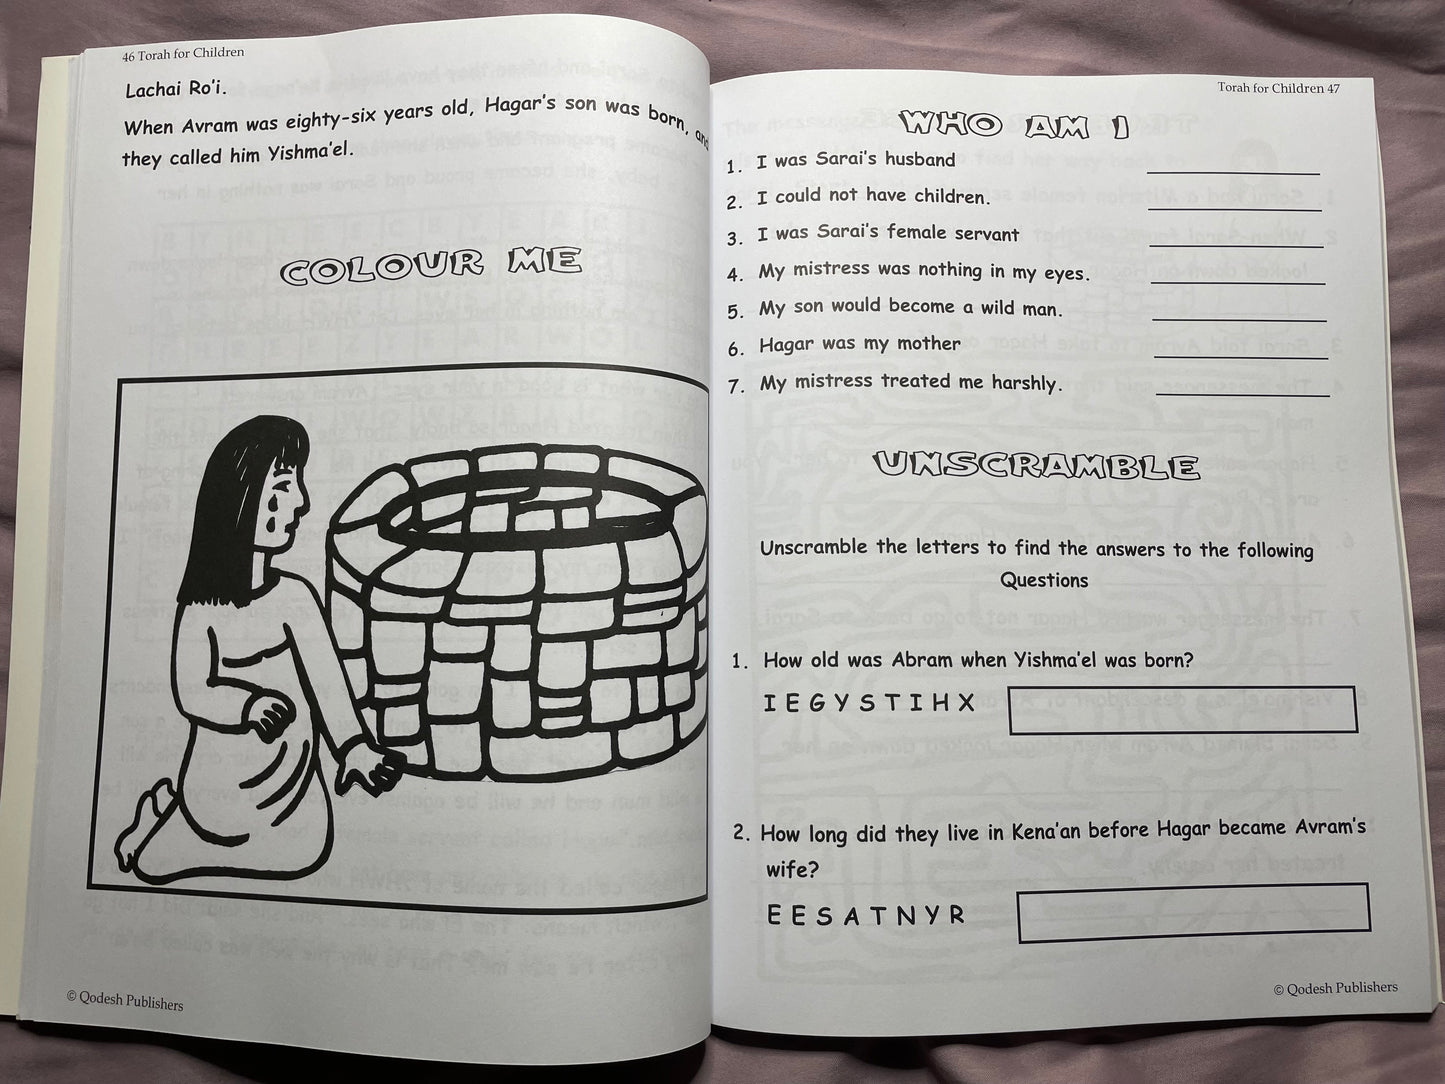 46 Torah for Children
Lachai Ro'i.
When Avram was eighty-six years old, Hagar's son was born, and
they called him Yishma'el.
COLOUR ME
© Qodesh Publishers
Torah for Children 47
WHO AM I
1. I was Sarai's husband
2. I could not have children.
3. I was Sarai's female servant
4. My mistress was nothing in my eyes.
5. My son would become a wild man.
6. Hagar was my mother
7. My mistress treated me harshly.
UNSCRAMBLE
Unscramble the letters to find the answers to the following
Questions
1. How old was Abram when Yishma'el was born?
I E G Y S T I H X
2. How long did they live in Kena'an before Hagar became Avram's
wife?
E E S A T N Y R
© Qodesh Publishers